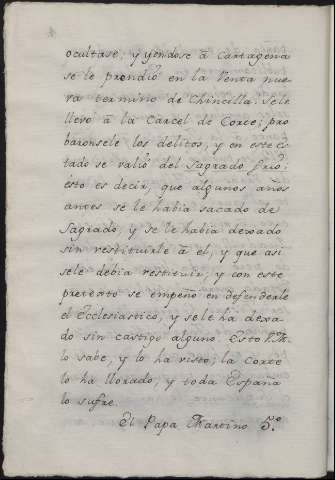 ocultase; y yendose à Cartagena
se le prendio en la Venta nue-
va termino de Chincilla. Sele
llevo à la Carcel de Corte; pro
baronsele los delitos, y en este es
tado se valio del Sagrado frio;
esto es decir, que algunos años
antes se le habia sacado de
Sagrado, y se le habia dexado
sin restituirle à el, y que asi
sele debia restituir, y con este
pretexto se empeño en defenderle
el Eclesiastico, y sele ha dexa-
do sin castigo alguno. Esto V.M.
lo sabe, y lo ha visto; la Corte
lo ha llorado, y toda España
lo sufre.
El Papa Martino 5.º